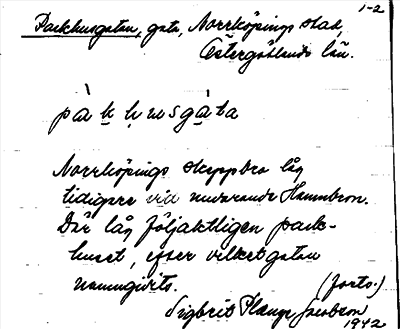 1-2
Packhusgatan, gata, Norrköpings stad,
Östergötlands län.
pàkhusgáta
Norrköpings skeppsbro låg
tidigare vid nuvarande Hamnbron.
Där låg följaktligen pack-
huset, efter vilket gatan
namngivits.
(forts.)
Sigbrit Plænge Jacobson
1942